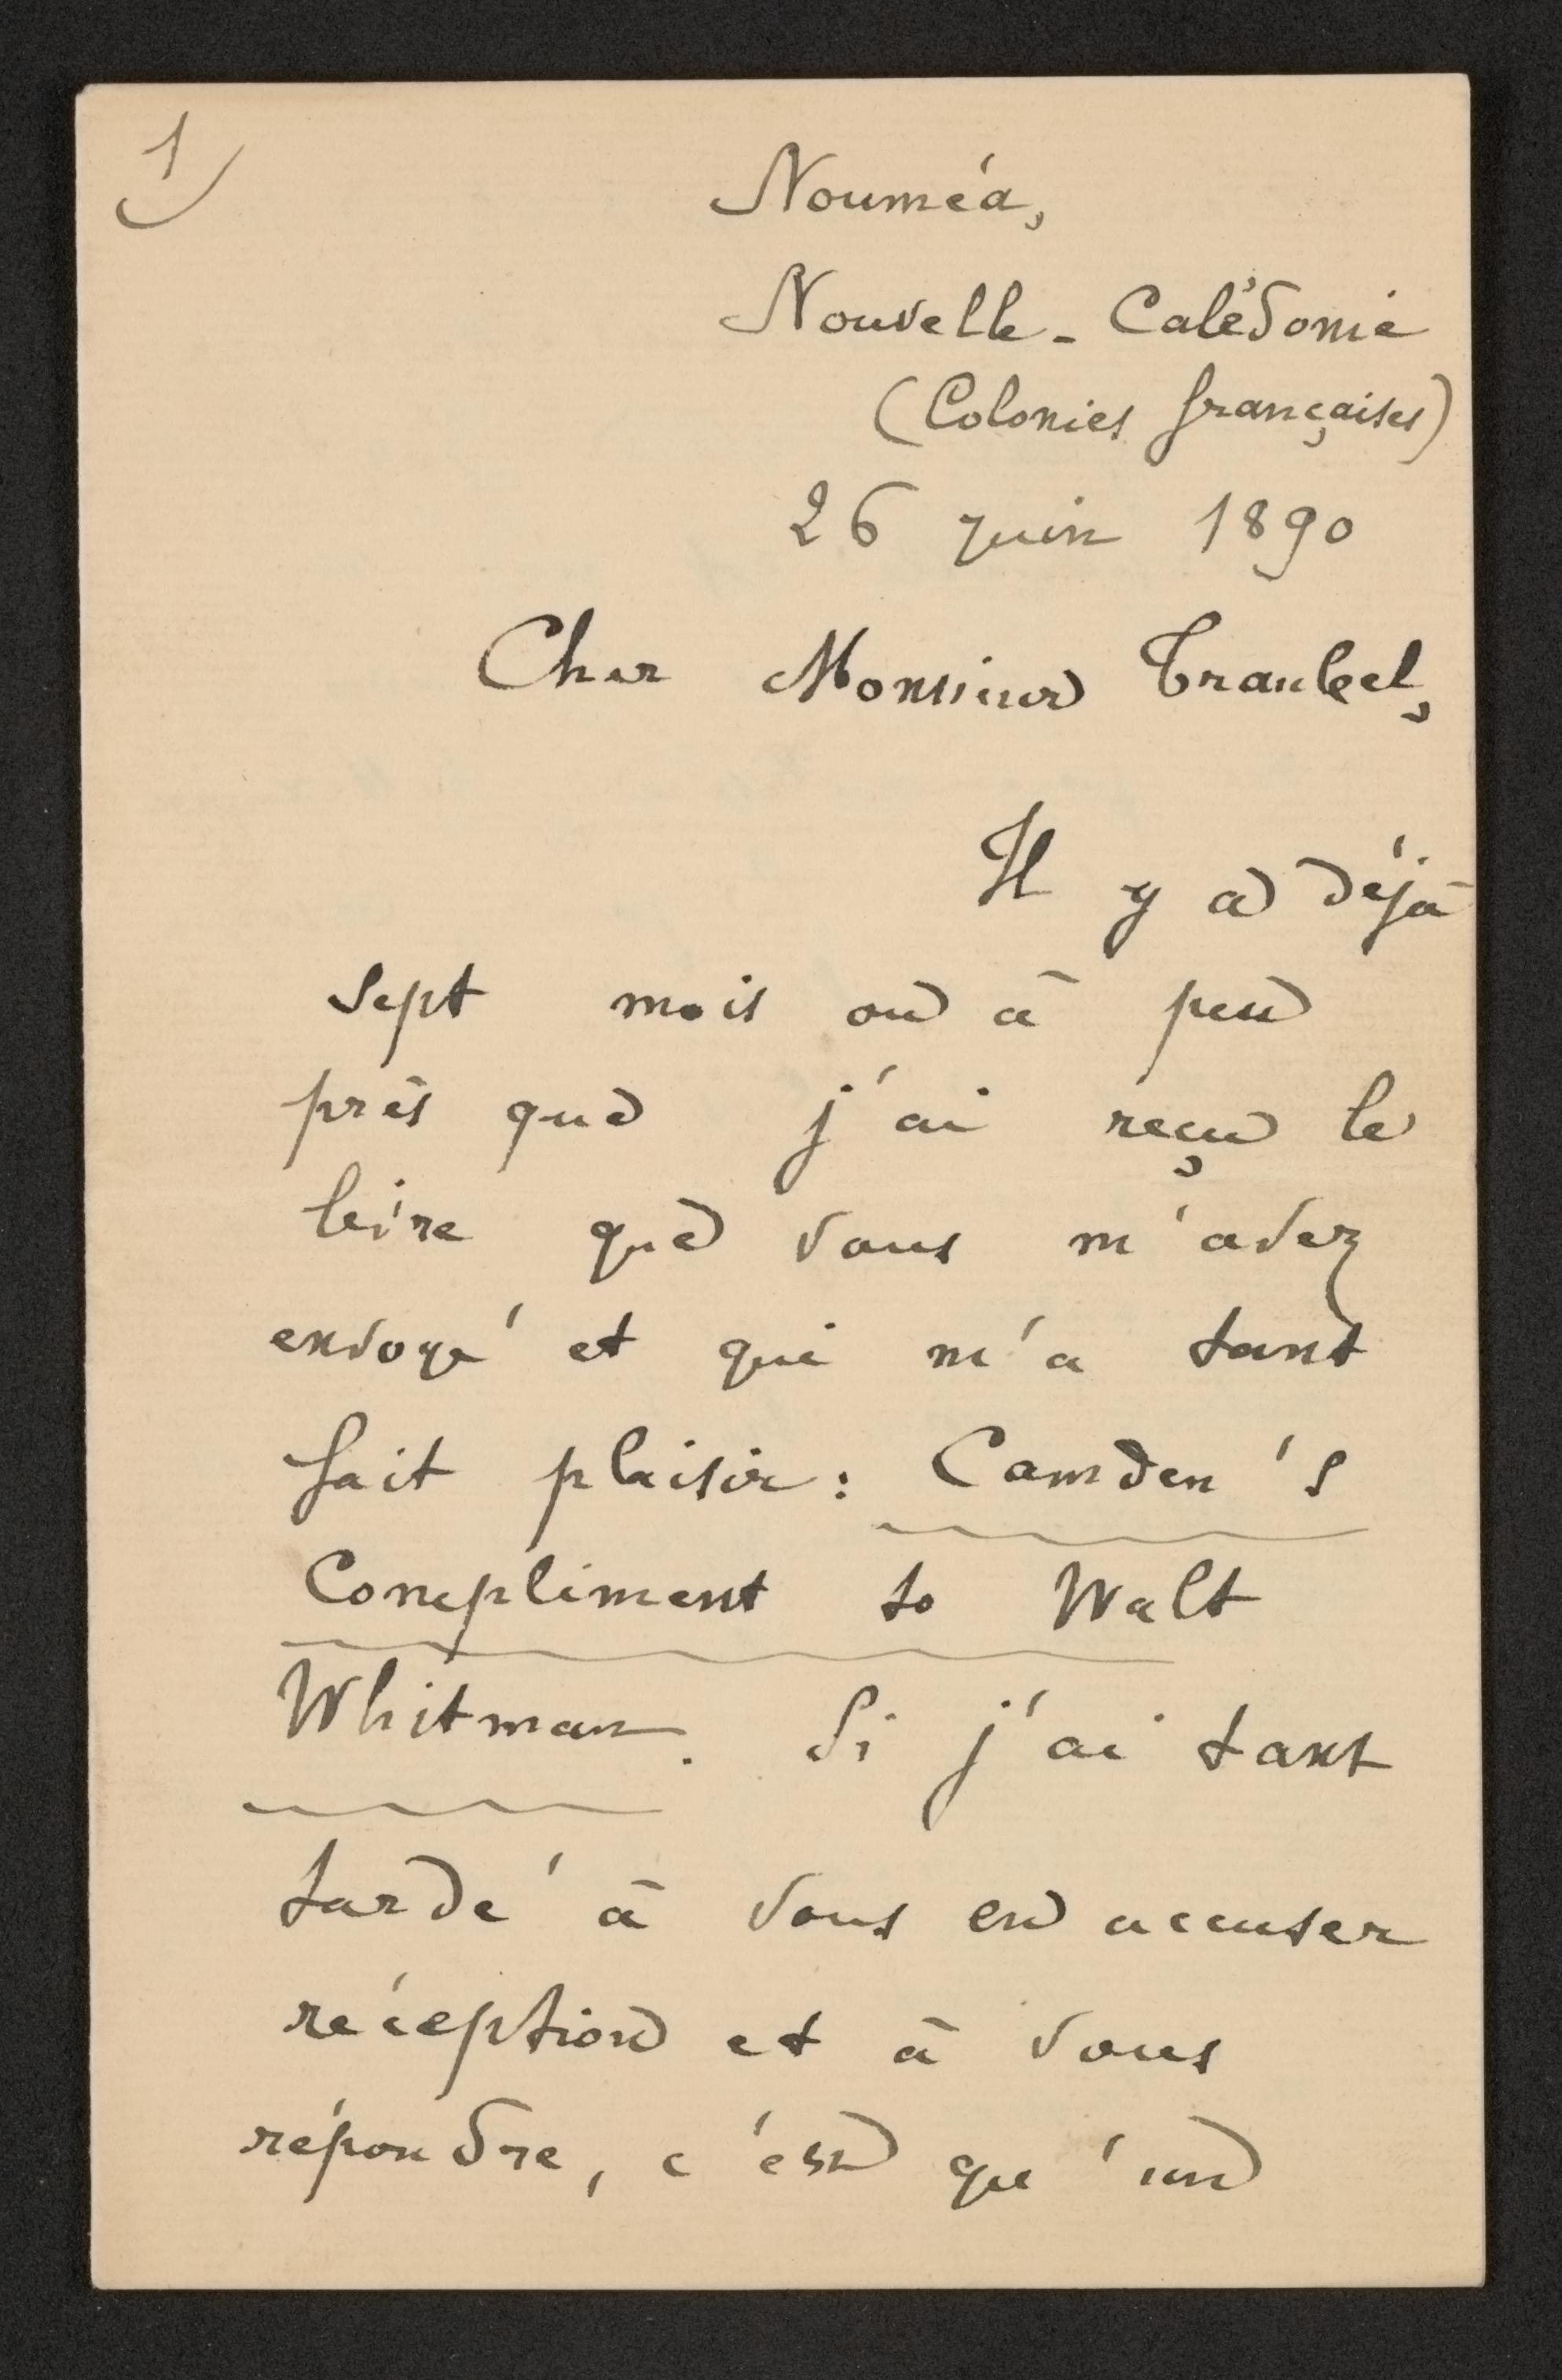 1
Nouméa,
Nouvelle-Calédonie
(Colonies françaises)
26 juin 1890
Cher Monsieur Traubel,
Il y a déjà
sept mois ou à peu
près que j'ai reçu le
livre que vous m'avez
envoyé et qui m'a tant
fait plaisir: Camden's
Compliment to Walt
Whitman. Si j'ai tant
tardé à vous en accuser
réception et à vous
répondre, c'est qu'un